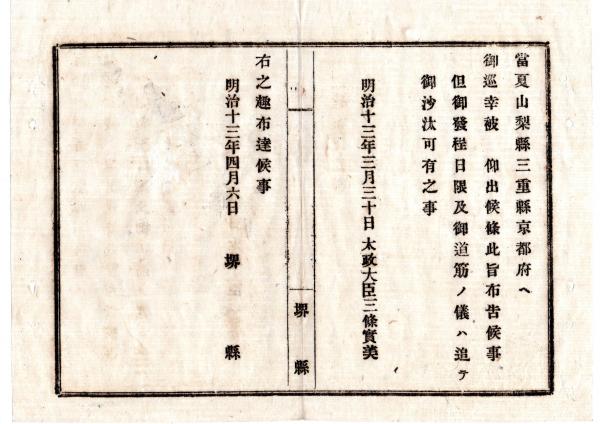 當夏山梨縣三重縣京都府ヘ
御巡幸被　仰出候條此旨布告候事
但御發程日限及御道筋ノ儀ハ追テ
御沙汰可有之事
明治十三年三月三十日 太政大臣三條實美
堺縣
右之趣布達候事
明治十三年四月六日　堺縣